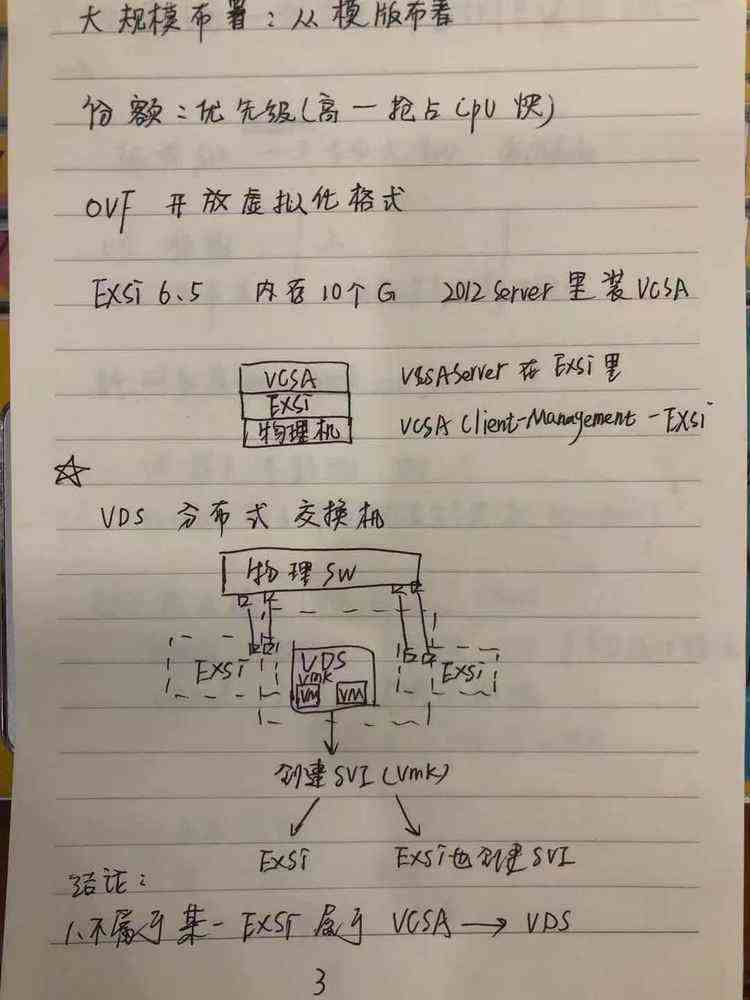 大规模布署：从模版布署
份额：优先级(高一抢占CPU快)
OVF 开放虚拟化格式
EXSi 6.5 内存10个G 2012 Server里装VCSA
VCSA
EXSi
物理机
VSSAServer在EXSi里
VCSA Client-Management-EXSi
☆
VDS 分布式交换机
物理SW
EXSi
VDS
vmk
VM
VM
EXSi
创建SVI(Vmk)
EXSi
EXSi也创建SVI
结论：
1、不属于某一EXSi属于 VCSA → VDS
3